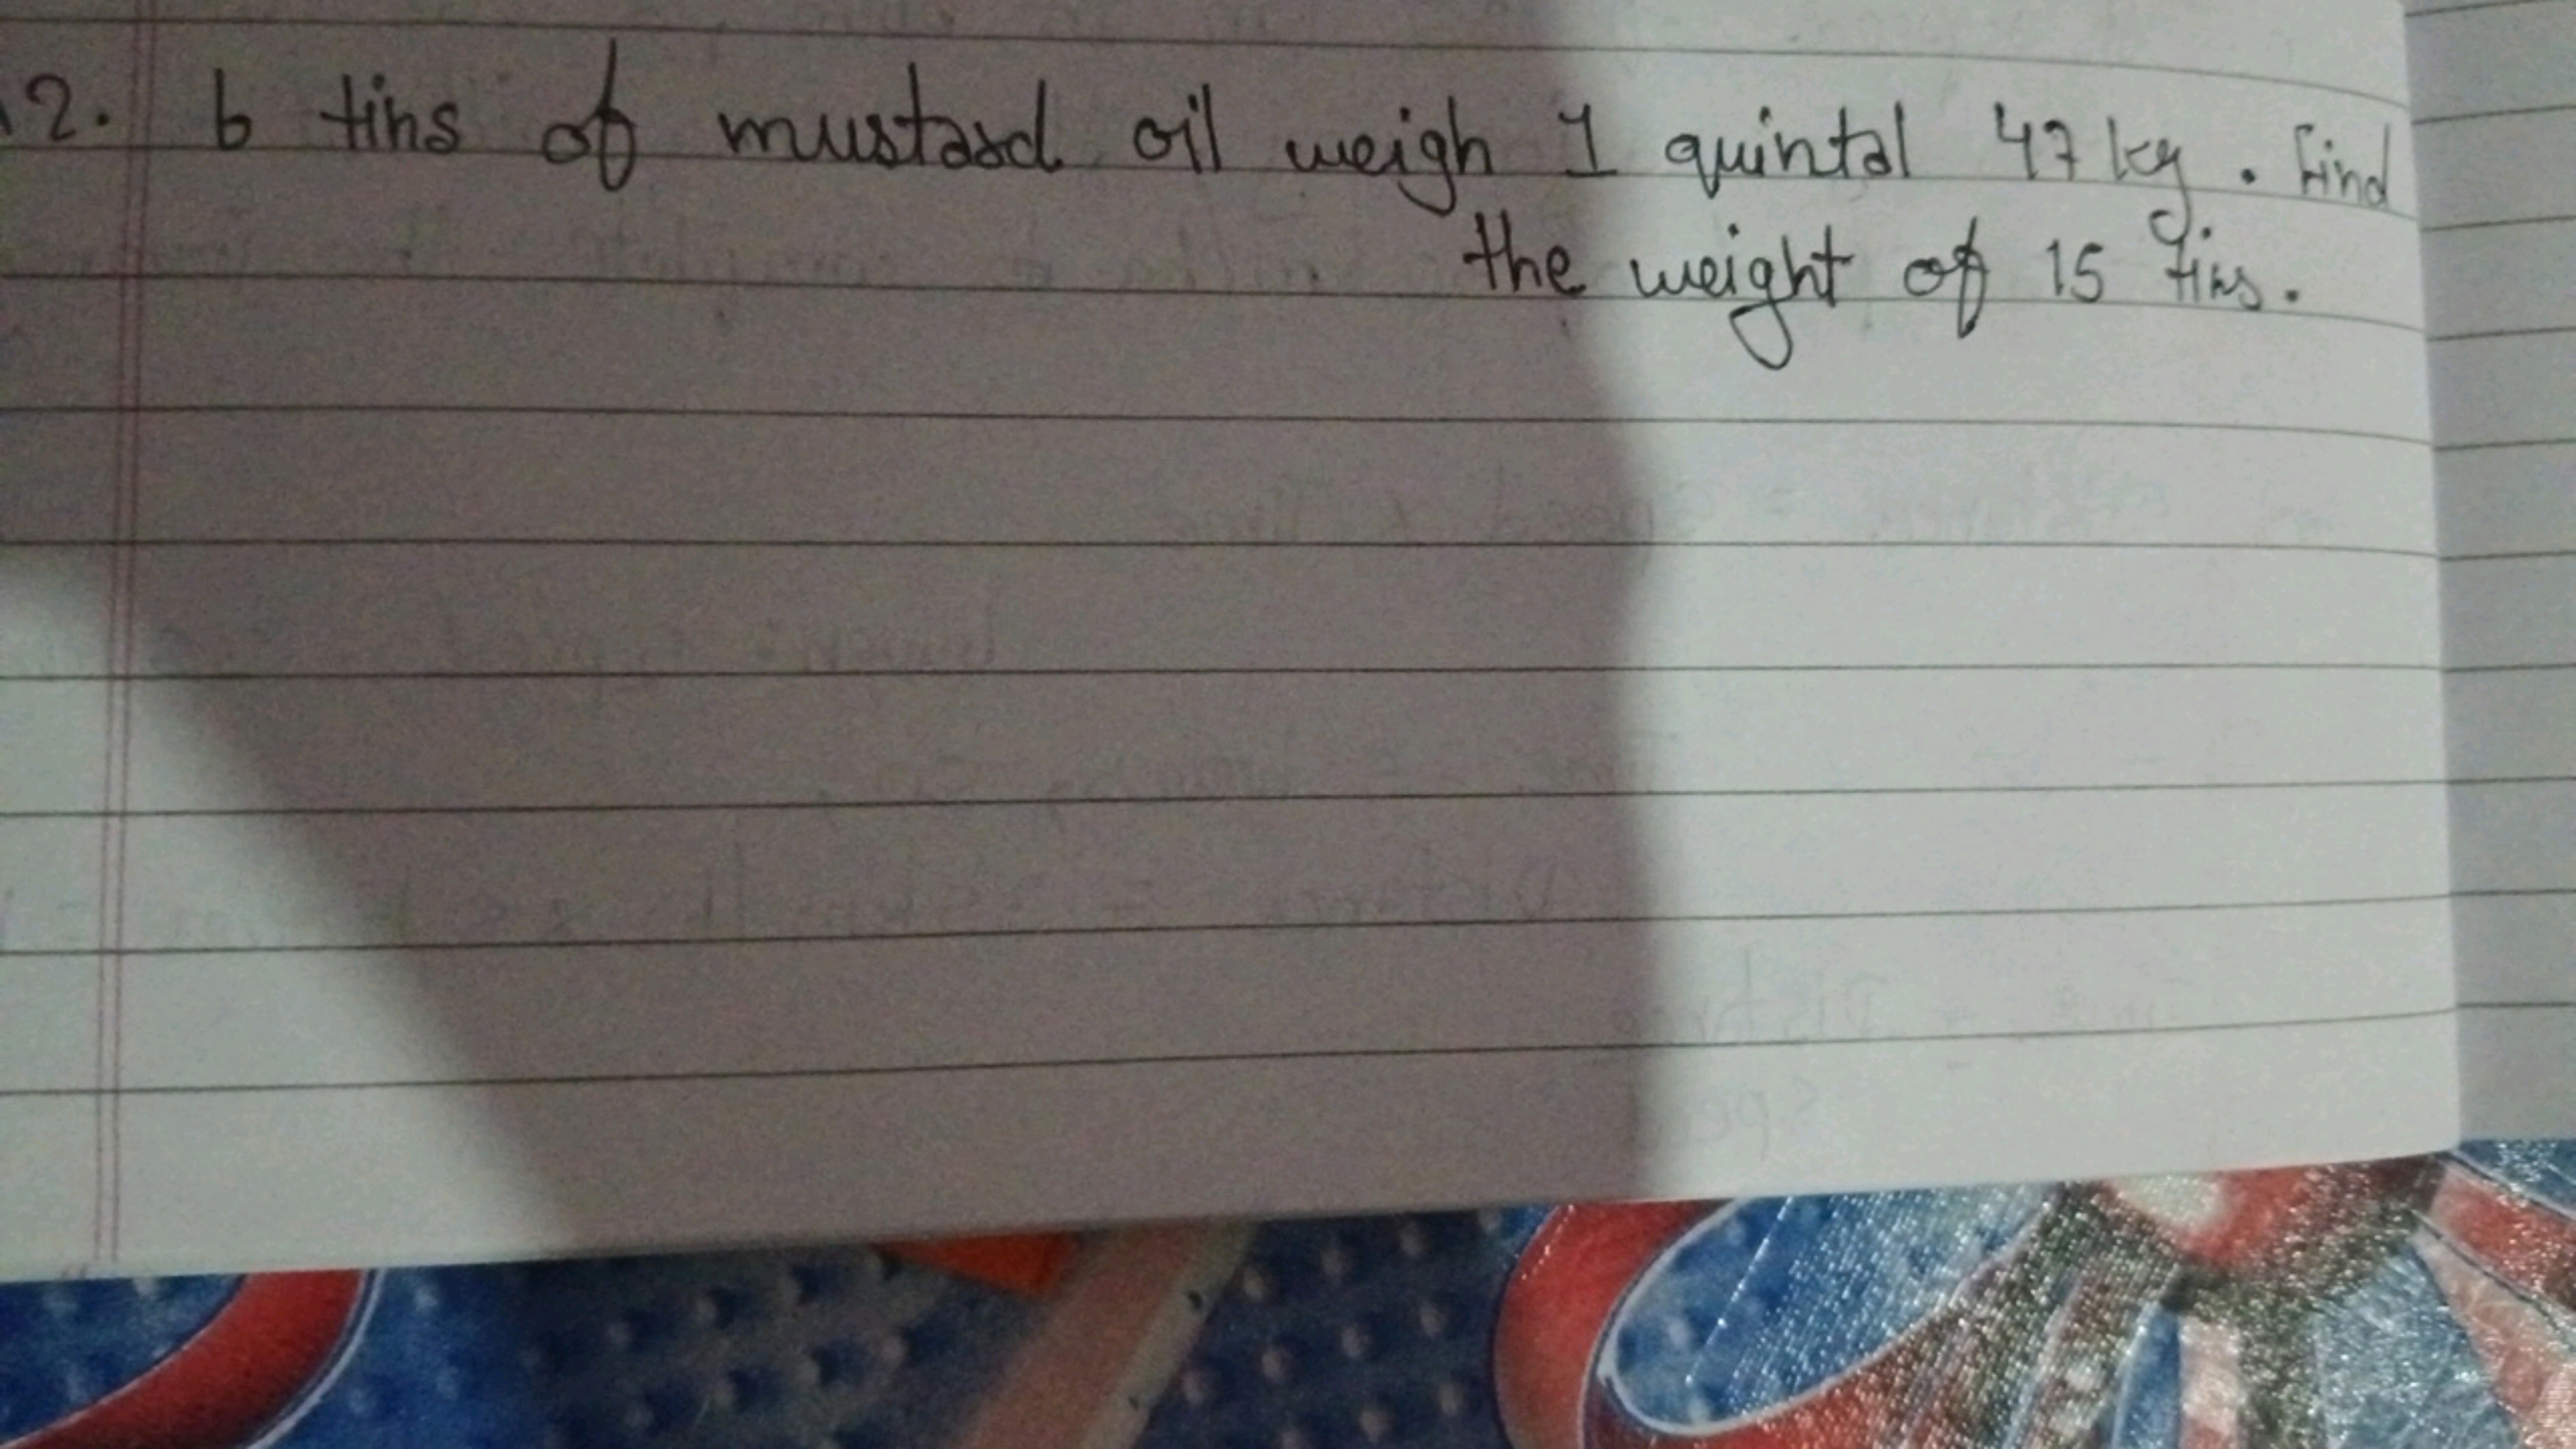 12. 6 tins of mustard oil weigh 1 quintal 47 kg. Find
the weight of 15 tins.